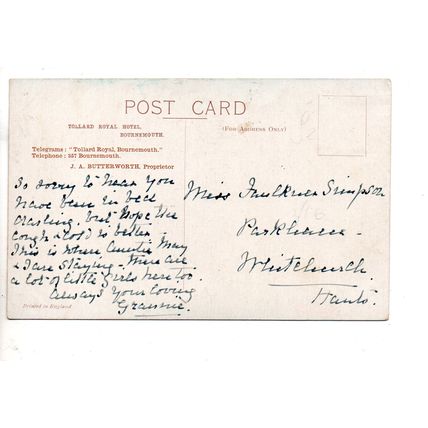 POST CARD
TOLLARD ROYAL HOTEL,
BOURNEMOUTH.
(FOR ADDRESS ONLY)
Telegrams: "Tollard Royal, Bournemouth."
Telephone: 357 Bournemouth.
J. A. BUTTERWORTH, Proprietor
So sorry to hear you
have been in bed
but hope the
cough & cold is better
This is where Auntie May
& I are staying. There are
a lot of little girls here too.
Always Your loving
Grannie.
Miss Faulkner Simpson
Whitchurch.
Hants.
Printed in England